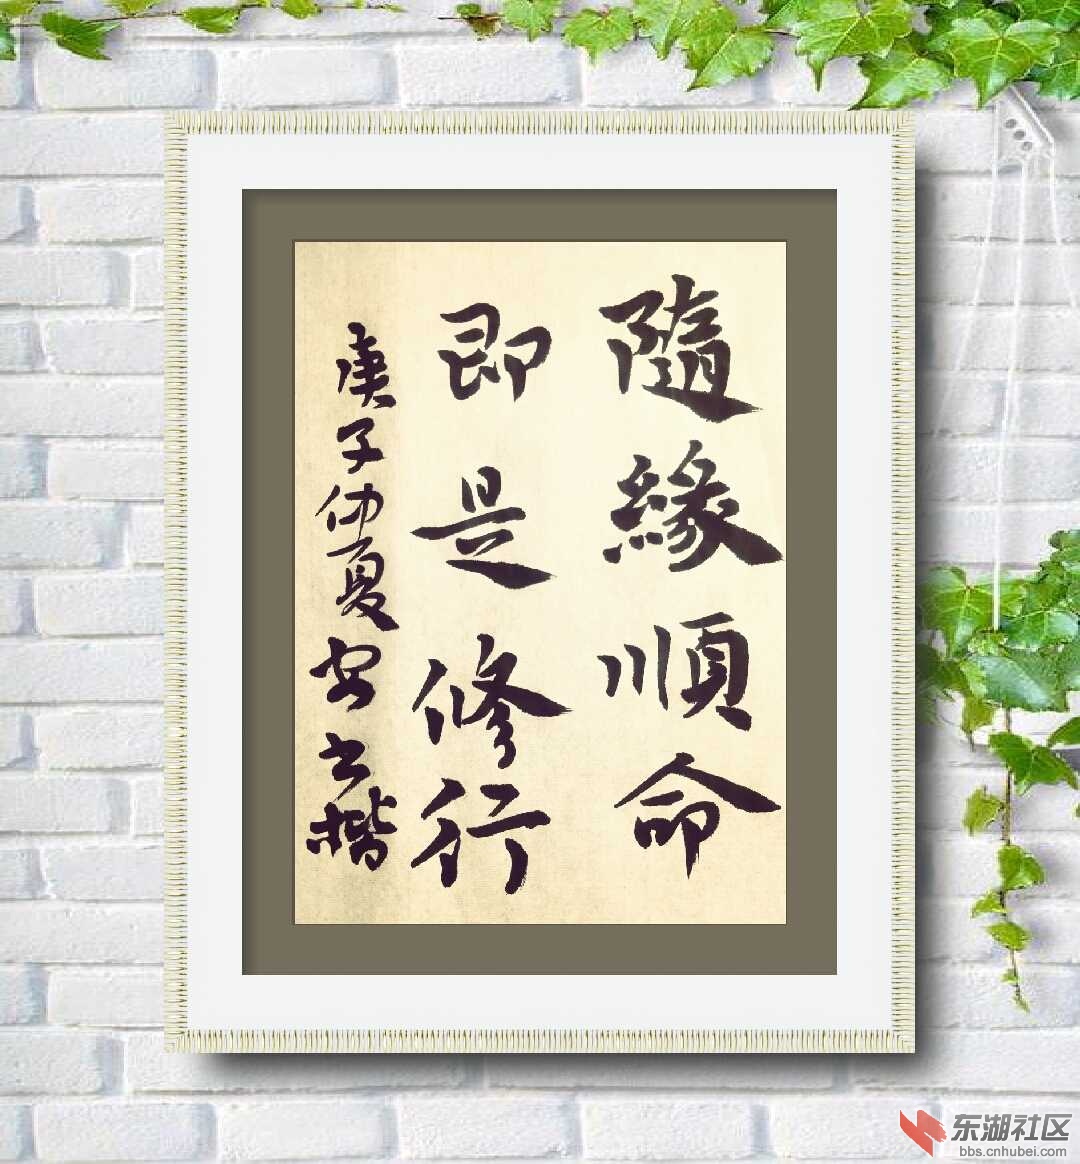 隨緣順命
即是修行
庚子仲夏安之楷
东湖社区
bbs.cnhubei.com